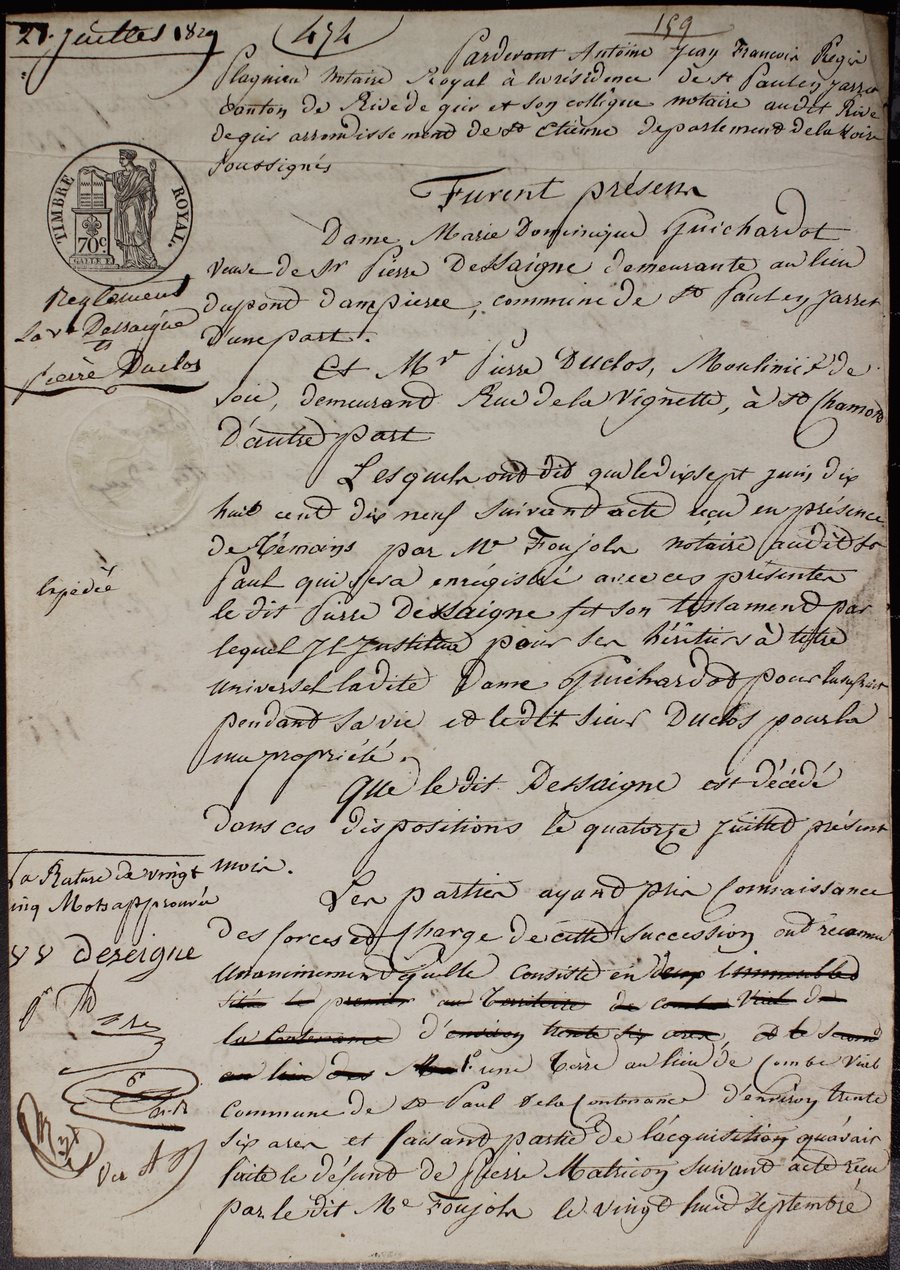 27 juillet 1829
474
159
Pardevant Antoine Jean François Régis
Plagnieu Notaire Royal à la résidence de St Paul en Jarret
Canton de Rive de gier et son collègue notaire audit Rive
de gier arrondissement de St Etiènne département de la Loire
soussignés
Furent présens
Dame Marie Dominique Guichardot
veuve de Sr Pierre Dessaigne demeurante au lieu
du pont dampierre, commune de St Paul en Jarret
D'une part.
Et Mr Pierre Duclos, Moulinier de
soie, demeurand Rue de la Vignette, à St Chamond
D'autre part
Lesquels ont dit que le dix sept juin dix
huit cend dix neuf suivand acte reçu en présence
de Témoins par Me Foujols notaire audit St
Paul qui sera enrégistré avec ces présentes
le dit Pierre Dessaigne fit son testament par
lequel Il Institua pour ses héritiers à titre
universel ladite Dame Guichardot pour lusufruit
pendand sa vie et le dit sieur Duclos pour la
nue propriété.
Que le dit Dessaigne est décédé
dans ces dispositions le quatorze juillet présent
mois.
Les parties ayand pris Connaissance
des forces et Charge de cette succession ont reconnu
unanimement qu'elle consiste en deux immeubles
situé le premier au Territoire de combe Vial de
la Contenance d'environ trente six ares, et le second
au lieu des 1° une Terre au lieu de Combe Vial
Commune de St Paul de la Contenance d'environ trente
six ares et faisand partie de l'acquisition qu'avait
faite le défunt de Pierre Matricon suivand acte reçu
par le dit Me Foujols le vingt huit Septembre
TIMBRE ROYAL.
70c
Règlement
La ve Dessaigne
et
Pierre Duclos
Expédié
La Rature de vingt
cinq Mots approuvée
vv dezeigne